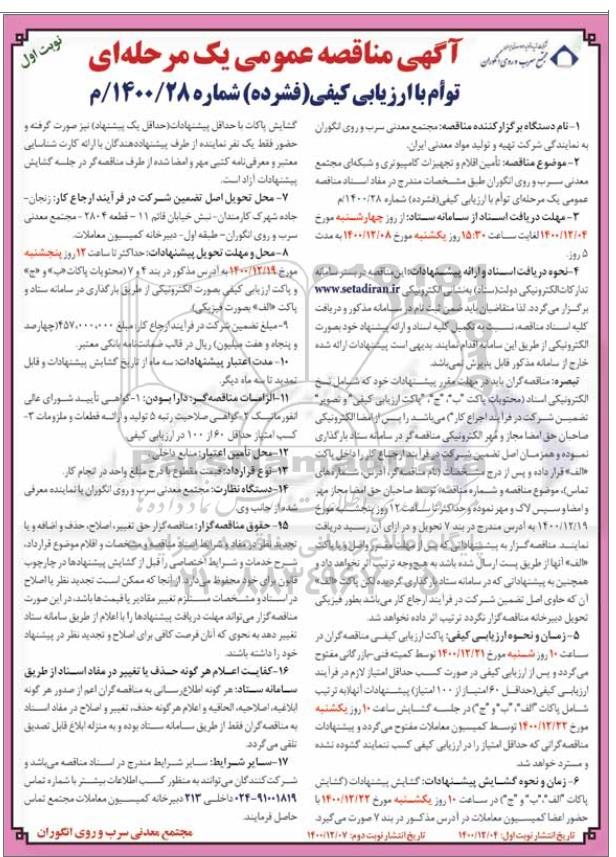 نوبت اول
شرکت تهیه و تولید مواد معدنی ایران
مجتمع سرب و روی انگوران
آگهی مناقصه عمومی یک مرحله‌ای
توأم با ارزیابی کیفی(فشرده) شماره ۱۴۰۰/۲۸/م
۱-نام دستگاه برگزار کننده مناقصه: مجتمع معدنی سرب و روی انگوران
به نمایندگی شرکت تهیه و تولید مواد معدنی ایران.
۲-موضوع مناقصه: تأمین اقلام و تجهیزات کامپیوتری و شبکه‌ای مجتمع
معدنی سرب و روی انگوران طبق مشخصات مندرج در مفاد اسناد مناقصه
عمومی یک مرحله‌ای توأم با ارزیابی کیفی(فشرده) شماره ۱۴۰۰/۲۸/م
۳- مهلت دریافت اسناد از سامانه ستاد: از روز چهارشنبه مورخ
۱۴۰۰/۱۲/۰۴ لغایت ساعت ۱۵:۳۰ روز یکشنبه مورخ ۱۴۰۰/۱۲/۰۸ به مدت
۵ روز.
۴-نحوه دریافت اسناد و ارائه پیشنهادات: این مناقصه در بستر سامانه
تدارکات الکترونیکی دولت(ستاد) به نشانی الکترونیکی www.setadiran.ir
برگزار می‌گردد. لذا متقاضیان باید ضمن ثبت نام در سامانه مذکور و دریافت
کلیه اسناد مناقصه، نسبت به تکمیل کلیه اسناد و ارائه پیشنهاد خود بصورت
الکترونیکی از طریق این سامانه اقدام نمایند. بدیهی است پیشنهادات ارائه شده
خارج از سامانه مذکور قابل پذیرش نمی‌باشد.
تبصره: مناقصه‌گران باید در مهلت مقرر پیشنهادات خود که شامل نسخ
الکترونیکی اسناد (محتویات پاکت "ب"، "ج"، "پاکت ارزیابی کیفی" و تصویر"
تضمین شرکت در فرآیند اجراع کار") می‌باشد را پس از امضا الکترونیکی
صاحبان حق امضا مجاز و مُهر الکترونیکی مناقصه‌گر در سامانه ستاد بارگذاری
نموده و همزمان اصل تضمین شرکت در فرآیند ارجاع کار را داخل پاکت
«الف» قرار داده و پس از درج مشخصات (نام مناقصه‌گر، آدرس، شماره‌های
تماس)، موضوع مناقصه و شماره مناقصه، توسط صاحبان حق امضا مجاز مهر
و امضا و سپس لاک و مهر نموده و حداکثر تا ساعت ۱۲ روز پنجشنبه مورخ
۱۴۰۰/۱۲/۱۹ به آدرس مندرج در بند ۷ تحویل و در ازای آن رسید دریافت
نمایند. مناقصه‌گزار به پیشنهاداتی که پس از مهلت مقرر واصل و یا پاکت
«الف» آنها از طریق پست ارسال شده باشد به هیچ‌وجه ترتیب اثر نخواهد داد و
همچنین به پیشنهاداتی که در سامانه ستاد بارگذاری گردیده لکن پاکت «الف»
آن که حاوی اصل تضمین شرکت در فرآیند ارجاع کار می‌باشد بطور فیزیکی
تحویل دبیرخانه مناقصه‌گزار نگردد ترتیب اثر داده نخواهد شد.
۵-زمان و نحوه ارزیابی کیفی: پاکت ارزیابی کیفی مناقصه‌گران در
ساعت ۱۰ روز شنبه مورخ ۱۴۰۰/۱۲/۲۱ توسط کمیته فنی-بازرگانی مفتوح
می‌گردد و پس از ارزیابی کیفی در صورت کسب حداقل امتیاز لازم در فرآیند
ارزیابی کیفی(حداقل ۶۰ امتیاز از ۱۰۰ امتیاز) پیشنهادات آنها(به ترتیب
شامل پاکات "الف"، "ب" و "ج") در جلسه گشایش ساعت ۱۰ روز یکشنبه
مورخ ۱۴۰۰/۱۲/۲۲ توسط کمیسیون معاملات مفتوح می‌گردد و پیشنهادات
مناقصه‌گرانی که حداقل امتیاز را در ارزیابی کیفی کسب ننمایند گشوده نشده
و مسترد خواهد شد.
۶- زمان و نحوه گشایش پیشنهادات: گشایش پیشنهادات (گشایش
پاکات "الف"، "ب" و "ج") در ساعت ۱۰ روز یکشنبه مورخ ۱۴۰۰/۱۲/۲۲ با
حضور اعضا کمیسیون معاملات در آدرس مذکور در بند ۷ صورت می‌گیرد.
گشایش پاکات با حداقل پیشنهادات(حداقل یک پیشنهاد) نیز صورت گرفته و
حضور فقط یک نفر نماینده از طرف پیشنهاددهندگان با ارائه کارت شناسایی
معتبر و معرفی‌نامه کتبی مهر و امضا شده از طرف مناقصه‌گر در جلسه گشایش
پیشنهادات آزاد است.
۷- محل تحویل اصل تضمین شرکت در فرآیند ارجاع کار: زنجان-
جاده شهرک کارمندان- نبش خیابان قائم ۱۱ - قطعه ۲۸۰۴ - مجتمع معدنی
سرب و روی انگوران- طبقه اول- دبیرخانه کمیسیون معاملات.
۸-محل و مهلت تحویل پیشنهادات: حداکثر تا ساعت ۱۲ روز پنجشنبه
مورخ ۱۴۰۰/۱۲/۱۹ به آدرس مذکور در بند ۴ و ۷ (محتویات پاکات «ب» و «ج»
و پاکت ارزیابی کیفی بصورت الکترونیکی از طریق بارگذاری در سامانه ستاد و
پاکت «الف» بصورت فیزیکی).
۹-مبلغ تضمین شرکت در فرآیند ارجاع کار: مبلغ ۴۵۷,۰۰۰,۰۰۰(چهارصد
و پنجاه و هفت میلیون) ریال در قالب ضمانت‌نامه بانکی معتبر.
۱۰-مدت اعتبار پیشنهادات: سه ماه از تاریخ گشایش پیشنهادات و قابل
تمدید تا سه ماه دیگر.
۱۱-الزامات مناقصه‌گر: دارا بودن: ۱-گواهی تأیید شورای عالی
انفورماتیک ۲-گواهی صلاحیت رتبه ۵ تولید و ارائه قطعات و ملزومات ۳-
کسب امتیاز حداقل ۶۰ از ۱۰۰ در ارزیابی کیفی.
۱۲-محل تأمین اعتبار: منابع داخلی.
۱۳-نوع قرارداد: قیمت مقطوع با درج مبلغ واحد در انجام کار.
۱۴-دستگاه نظارت: مجتمع معدنی سرب و روی انگوران یا نماینده معرفی
شده از جانب وی
۱۵- حقوق مناقصه‌گزار: مناقصه‌گزار حق تغییر، اصلاح، حذف و اضافه و یا
تجدید نظر در مفاد و شرایط اسناد مناقصه و مشخصات و اقلام موضوع قرارداد،
شرح خدمات و شرایط اختصاصی را قبل از گشایش پیشنهادها در چارچوب
قانون برای خود محفوظ می‌دارد. از آنجا که ممکن است تجدید نظر یا اصلاح
در اسناد و مشخصات مستلزم تغییر مقادیر یا قیمت‌ها باشد، در این صورت
مناقصه‌گزار می‌تواند مهلت دریافت پیشنهادها را با اعلام از طریق سامانه ستاد
تغییر دهد به نحوی که آنان فرصت کافی برای اصلاح و تجدید نظر در پیشنهاد
خود را داشته باشند.
۱۶-کفایت اعلام هر گونه حذف یا تغییر در مفاد اسناد از طریق
سامانه ستاد: هر گونه اطلاع‌رسانی به مناقصه‌گران اعم از صدور هر گونه
ابلاغیه، اصلاحیه، الحاقیه و اعلام هر گونه حذف، تغییر و اصلاح در مفاد اسناد
به مناقصه‌گران فقط از طریق سامانه ستاد بوده و به منزله ابلاغ قابل تصدیق
تلقی می‌گردد.
۱۷-سایر شرایط: سایر شرایط مندرج در اسناد مناقصه می‌باشد و
شرکت‌کنندگان می‌توانند به منظور کسب اطلاعات بیشتر با شماره تماس
۰۲۴-۹۱۰۰۱۸۱۹ داخلی ۲۱۳ دبیرخانه کمیسیون معاملات مجتمع تماس
حاصل فرمایند.
تاریخ انتشار نوبت اول: ۱۴۰۰/۱۲/۰۴
تاریخ انتشار نوبت دوم: ۱۴۰۰/۱۲/۰۷
مجتمع معدنی سرب و روی انگوران